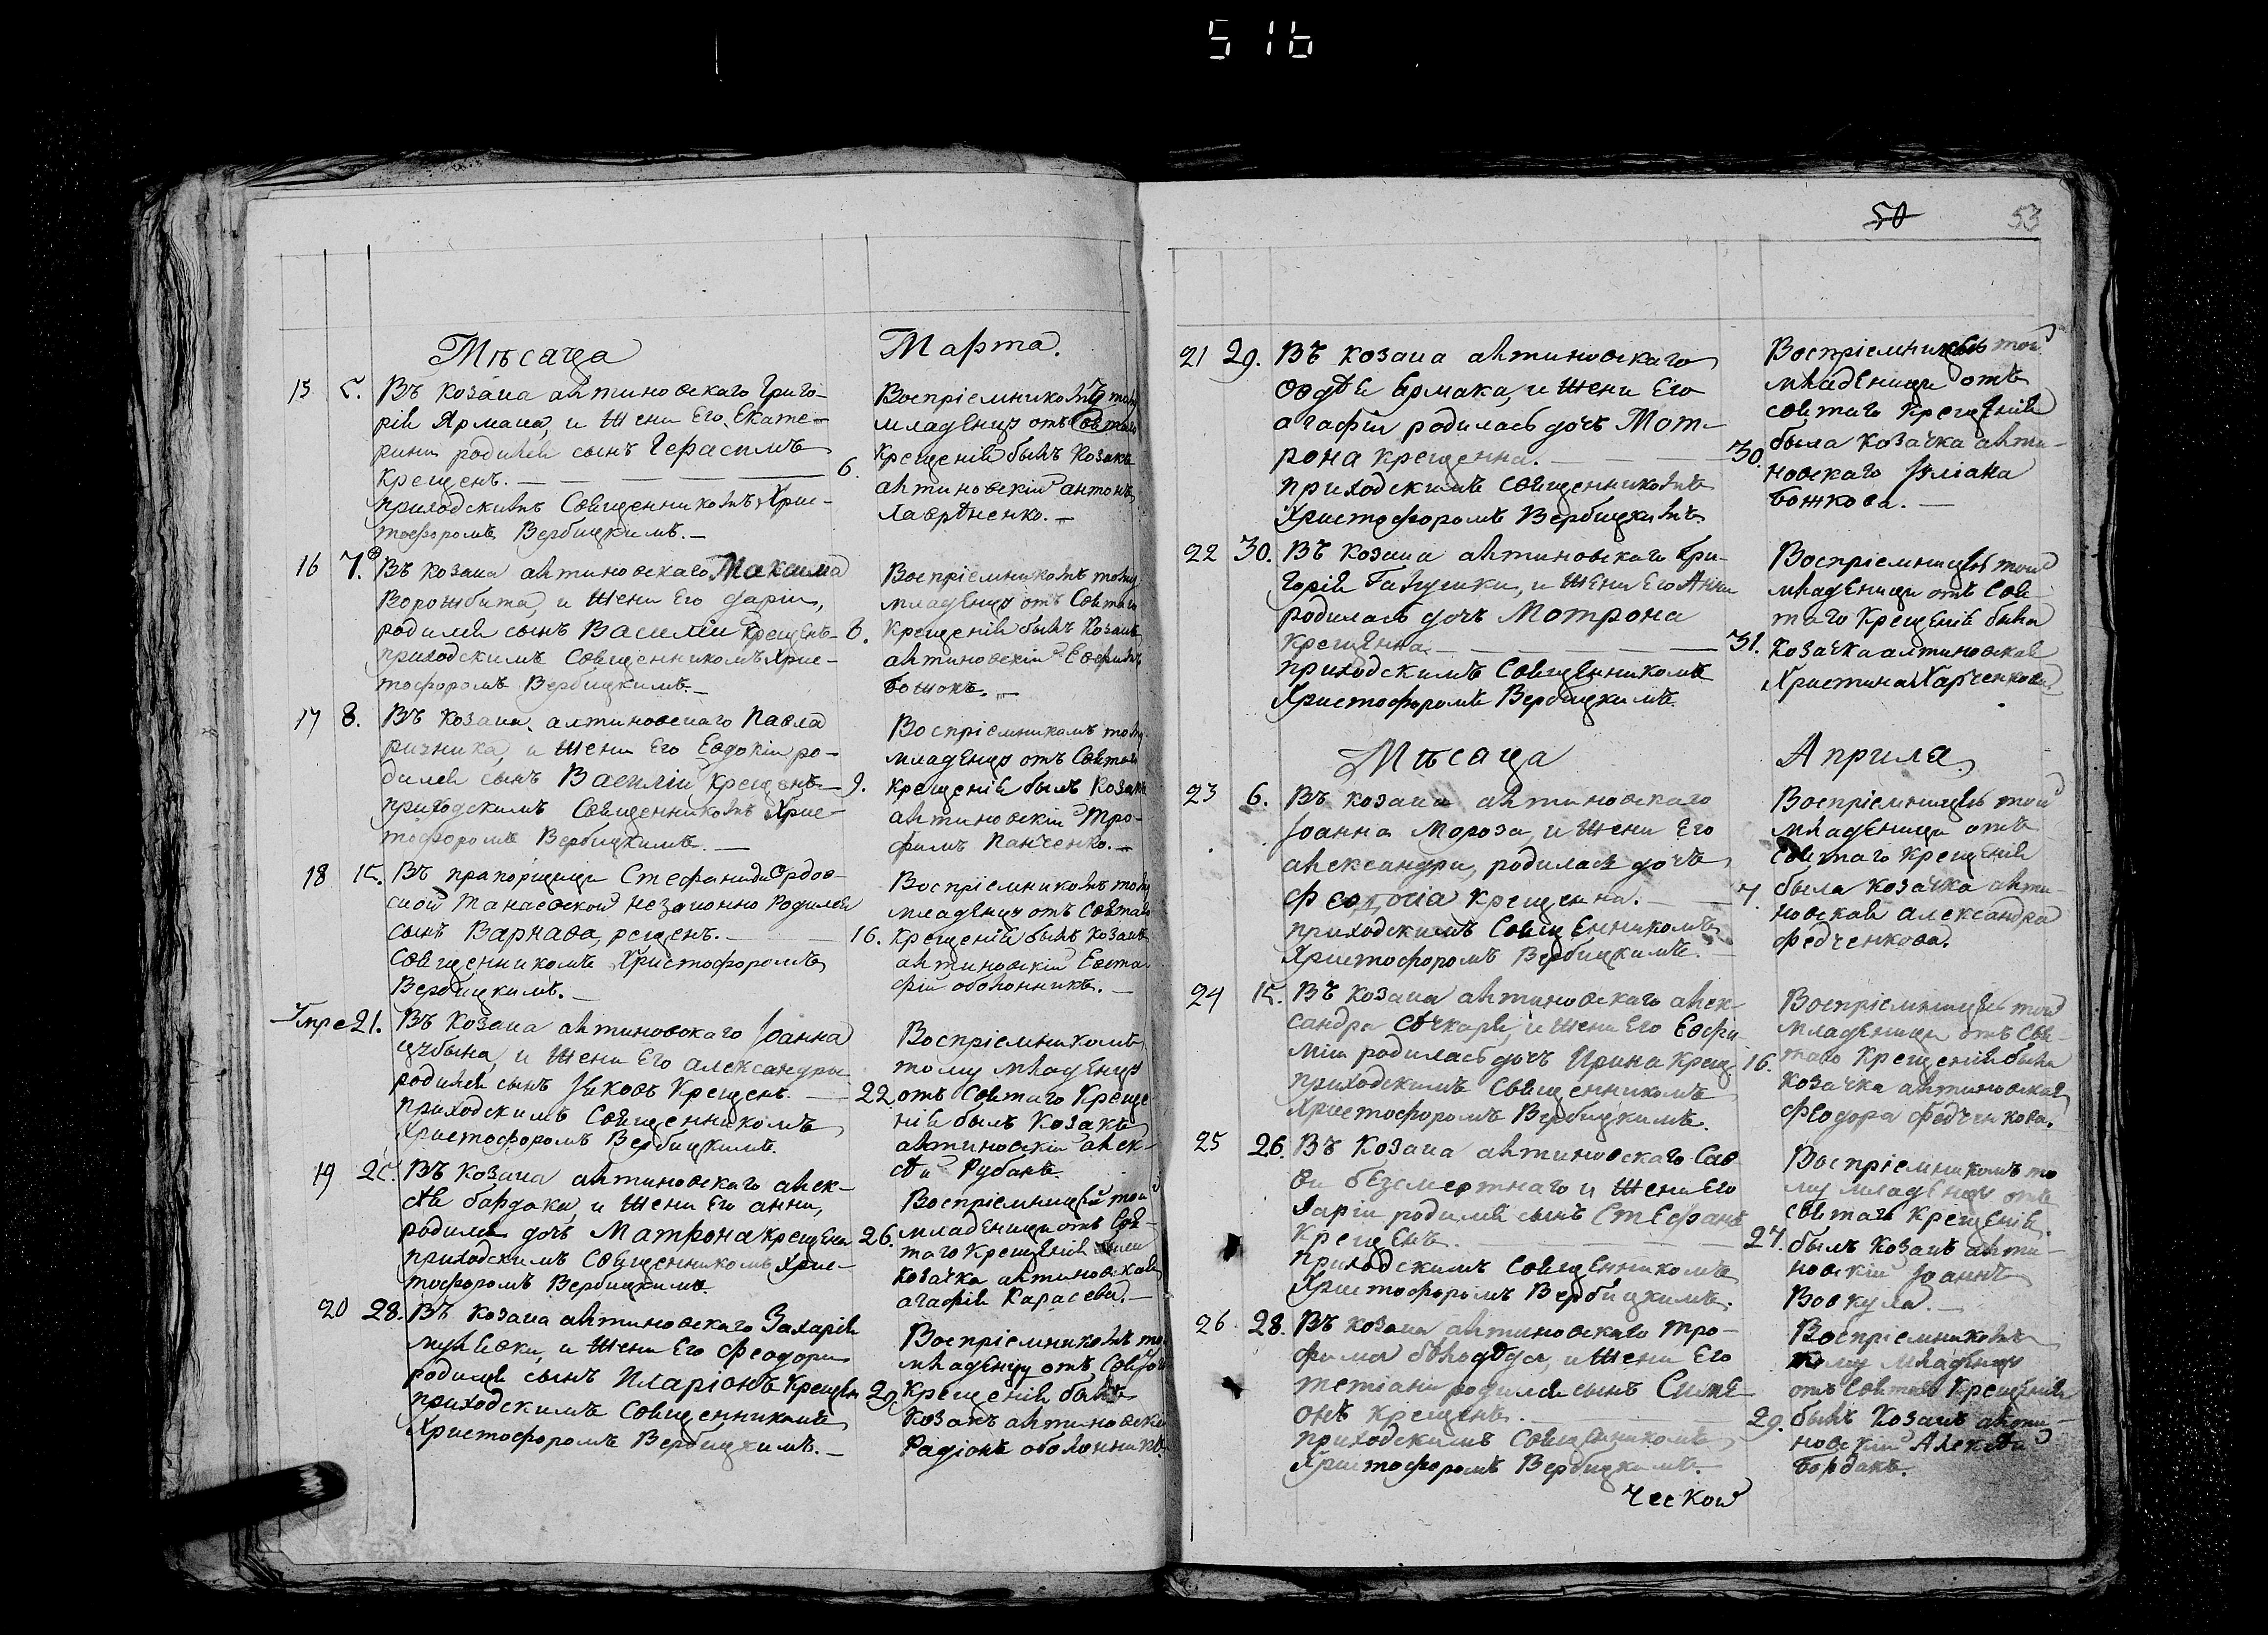 516
50 53
Мѣсяца
Марта.
15 5. Въ козака алтиновскаго Григо-
рія Ярмака, и жени Его Екате-
рини родился сынъ Герасимъ
Крещенъ. 6.
приходскимъ Священникомъ Хрис-
тофоромъ Вербицкимъ.
Воспріемникомъ тому
младенцу отъ Святаго
Крещенія былъ Козакъ
алтиновскій антонъ
Лаврѣненко.
16 7. Въ козака алтиновскаго Максима
Ворожбита, и жени Его дарии,
родился сынъ Василій крещенъ 8.
приходскимъ Священникомъ Хрис-
тофоромъ Вербицкимъ.
Воспріемникомъ тому
младенцу отъ Святаго
Крещенія былъ Козакъ
алтиновскій Евфимъ
Божокъ.
17 8. Въ Козака алтиновскаго Павла
ризника, и жени Его Евдокіи ро-
дился сынъ Василій крещенъ 9.
приходскимъ Священникомъ Хрис-
тофоромъ Вербицкимъ.
Воспріемникомъ тому
младенцу отъ Святаго
Крещенія былъ Козакъ
алтиновскій Тро-
фимъ Панченко.
18 15. Въ прапорщици Стефаниди
незаконно родился
сынъ Варнава, рещенъ. 16.
Священникомъ Христофоромъ
Вербицкимъ.
Воспріемникомъ тому
младенцу отъ Святаго
Крещенія былъ Козакъ
алтиновскій Евста-
фій оболонникъ.
21. Въ Козака алтиновскаго Іоанна
Цыбына, и жени Его александры
родился сынъ Іяковъ Крещенъ. 22.
приходскимъ Священникомъ
Христофоромъ Вербицкимъ.
Воспріемникомъ
тому младенцу
отъ Святаго Креще
нія былъ Козакъ
алтиновскій алек-
сѣй Рубанъ.
19 25. Въ Козака алтиновскаго алек-
сѣя бардака, и жени Его анни,
родилась дочъ Матрона крещена 26.
приходскимъ Священникомъ Хрис-
тофоромъ Вербицкимъ.
Воспріемницей той
младеници отъ Свя-
таго Крещенія была
козачка алтиновская
агафія Карасева.
20 28. Въ козака алтиновскаго Захарія
и жени Его Феодори
родился сынъ Иларіонъ Крещенъ 29.
приходскимъ Священникомъ
Христофоромъ Вербицкимъ.
Воспріемникомъ тому
младенцу отъ Святаго
Крещенія былъ
Козакъ алтиновскій
Радіонъ оболонникъ.
21 29. Въ козака алтиновскаго
Овдѣя Ермака, и жени Его
агафіи родилась дочъ Мот-
рона крещенна. 30.
приходскимъ Священникомъ
Христофоромъ Вербицкимъ
Воспріемницею той
младеници отъ
святаго Крещенія
была козачка алти-
новскаго Іуліана
Божкова.
22 30. Въ козака алтиновскаго Гри-
горія Галушки, и жени Его Анни
родилась дочъ Мотрона
крещенна. 31.
приходскимъ Священникомъ
Христофоромъ Вербицкимъ.
Воспріемницею той
младеници отъ Свя
таго Крещенія была
козачка алтиновская
Христина Харченкова.
Мѣсяца
Априля
23 6. Въ козака алтиновскаго
Іоанна Мороза, и жени Его
александри, родилась дочъ
Феодосіа крещенна. 7.
приходскимъ Священникомъ
Христофоромъ Вербицкимъ.
Воспріемницею той
младеници отъ
святаго Крещенія
была козачка алти-
новская александра
федченкова.
24 15. Въ Козака алтиновскаго алек-
сандра Сѣчкаря, и жени Его Евфи-
міи родилась дочъ Ирина Крещ 16.
приходскимъ Священникомъ
Христофоромъ Вербицкимъ.
Воспріемницею той
младеници отъ Свя-
таго Крещенія была
козачка алтиновская
Феодора Федченкова.
25 26. Въ Козака алтиновскаго Сав-
ви безсмертнаго и жени Его
Даріи родился сынъ Стефанъ
Крещенъ. 27.
приходскимъ Священникомъ
Христофоромъ Вербицкимъ.
Воспріемникомъ то
му младенцу отъ
святаго Крещенія
былъ Козакъ алти-
новскій Іоаннъ
Вовкула.
26 28. Въ козака алтиновскаго Тро-
фима бѣлодѣда, и жени Его
тетіани родился сынъ Симе-
онъ крещенъ. 29.
приходскимъ Священникомъ
Христофоромъ Вербицкимъ.
Воспріемникомъ
тому младенцу
отъ Святаго Крещенія
былъ Козакъ алти-
новскій Алексѣй
Бордакъ.
ческой